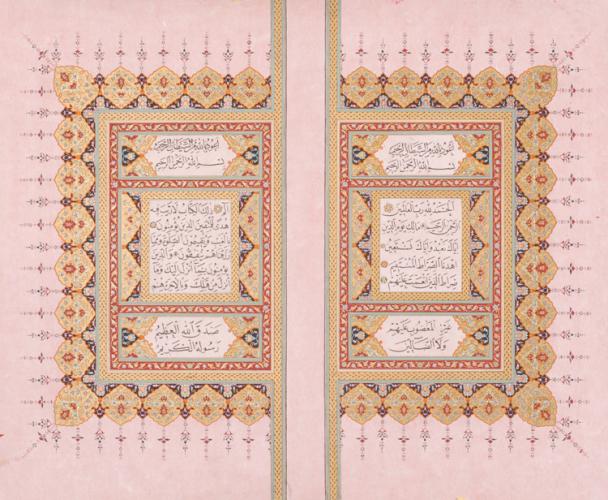 أعوذ بالله من الشيطان الرجيم
بسم الله الرحمن الرحيم
الحمد لله رب العالمين
الرحمن الرحيم مالك يوم الدين
إياك نعبد وإياك نستعين
اهدنا الصراط المستقيم
صراط الذين أنعمت عليهم
غير المغضوب عليهم
ولا الضالين
أعوذ بالله من الشيطان الرجيم
بسم الله الرحمن الرحيم
الم ذلك الكتاب لا ريب فيه
هدى للمتقين الذين يؤمنون
بالغيب ويقيمون الصلوة ومما
رزقناهم ينفقون والذين
يؤمنون بما أنزل إليك وما
أنزل من قبلك وبالآخرة هم
صدق الله العظيم
رسوله الكريم